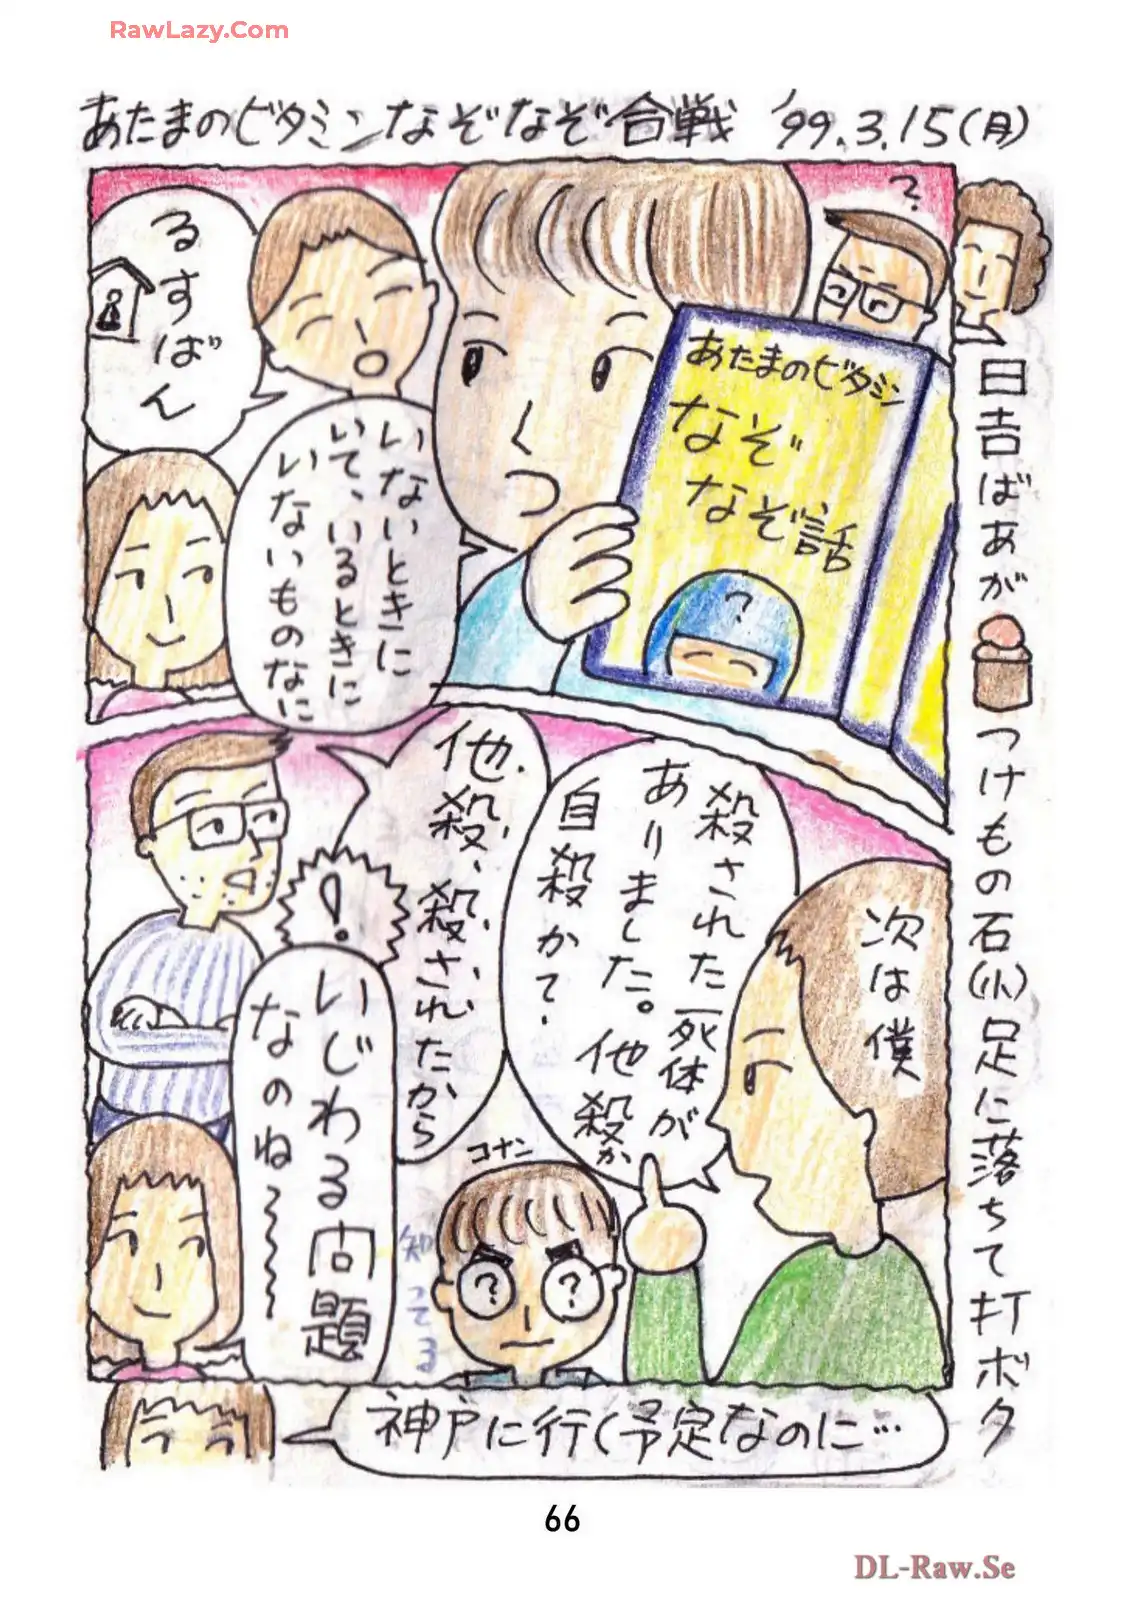 RawLazy.Com
あたまのビタミンなぞなぞ合戦 '99.3.15(月)
?
あたまのビタミン
なぞ
なぞ話
?
いないときに
いて、いるときに
いないものなに
るすばん
日吉ばあが つけもの石(小)足に落ちて打ボク
次は僕
殺された死体が
ありました。他殺か
自殺かて・
他、殺、殺、された、から
!
いじわる問題
なのね〜〜
コナン
? ?
知ってる
神戸に行く予定なのに…
66
DL-Raw.Se